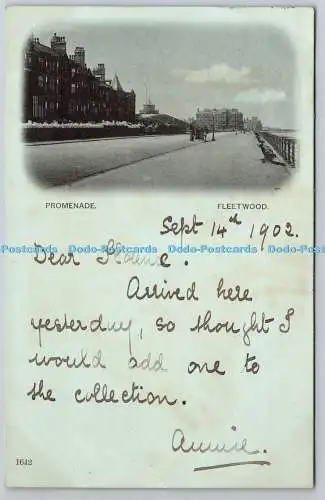 PROMENADE. FLEETWOOD.
Sept 14th 1902.
Dodo-Postcards Dodo-Postcards Dodo-Postcards Dodo-Postcards Dodo-Postcards
Dear Florence.
Arrived here
yesterday, so thought I
would add one to
the collection.
Annie.
1642